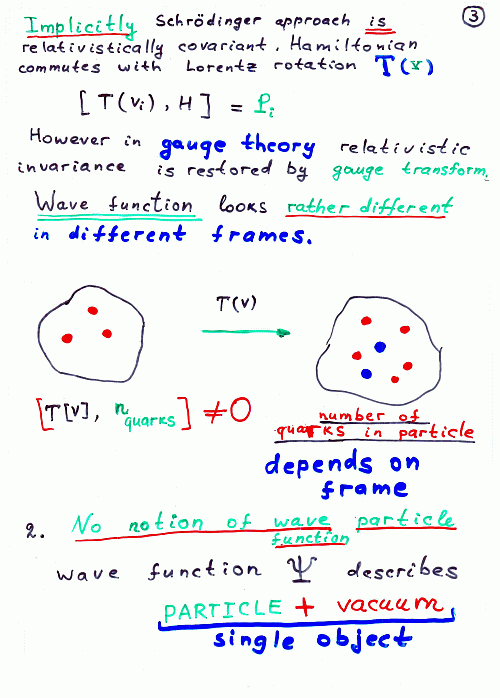 3
Implicitly Schrödinger approach is
relativistically covariant. Hamiltonian
commutes with Lorentz rotation T(v)
[T(vᵢ), H] = Pᵢ
However in gauge theory relativistic
invariance is restored by gauge transform.
Wave function looks rather different
in different frames.
T(v)
[T[v], n quarks] ≠ 0
number of
quarks in particle
depends on
frame
2. No notion of wave particle
function
wave function Ψ describes
PARTICLE + vacuum,
single object